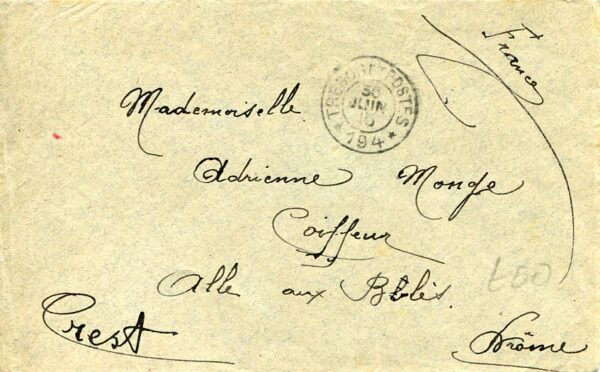 France
TRESOR ET POSTES
30
JUIN
* 194 *
Mademoiselle
Adrienne Monge
Coiffeur
Alle aux Bblés
Crest
Drôme
£50